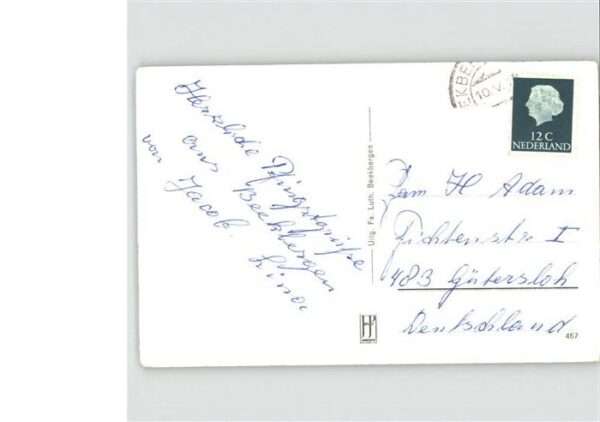 Herzliche Pfingstgrüße
aus Beekbergen
von Jacob. Lina
Uitg. Fa. Luth. Beekbergen
EKBE
10.V
12 C
NEDERLAND
Fam H Adam
Fichtenstr I
483 Gütersloh
Deutschland
H
467